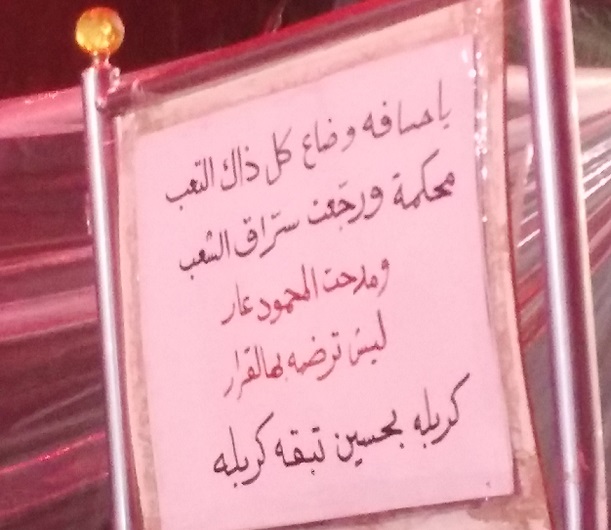 ياحسافه وضاع كل ذاك التعب
محكمة ورجعت سرّاق الشعب
ومدحت المحمود عار
ليش ترضه بهالقرار
كربله بحسين تبقه كربله